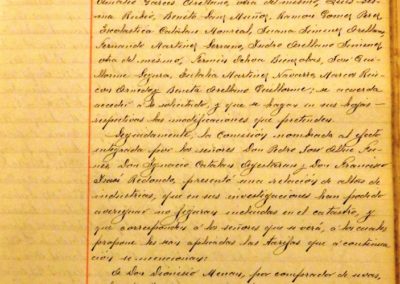 Amalio Garcés Arellano, otra del mismo, Luis Ser-
rano Rubio, Benito Sanz Muñoz, Ramon Gomez Perez
Escolastica Catalan Monreal, Juana Jimenez Arellano,
Fernando Martinez Serrano, Isidro Arellano Jimenez
otra del mismo, Fermin Ochoa Gonzalvez, José Gui-
llorme Segura, Eulalia Martinez Navarro, Marco Rue-
cas Arnedo y Benita Arellano Guillorme; se acuerda
acceder á lo solicitado, y que se hagan en sus hojas
respectivas las modificaciones que pretenden.
Seguidamente, la Comisión nombrada al efecto
integrada por los señores Don Pedro José Alvar, Ji-
Don Ignacio Catalan Agesteran y Don Francisco
Redondo, presentó una relación de altas de
industrias, que en sus investigaciones han podido
averiguar no figuran incluidas en el catastro, y
que corresponden á los señores que se verá, á los cuales
propone les sean aplicadas las tarifas que á continua-
cion se mencionan:
de Don Dionisio Menau, por comprador de uvas,